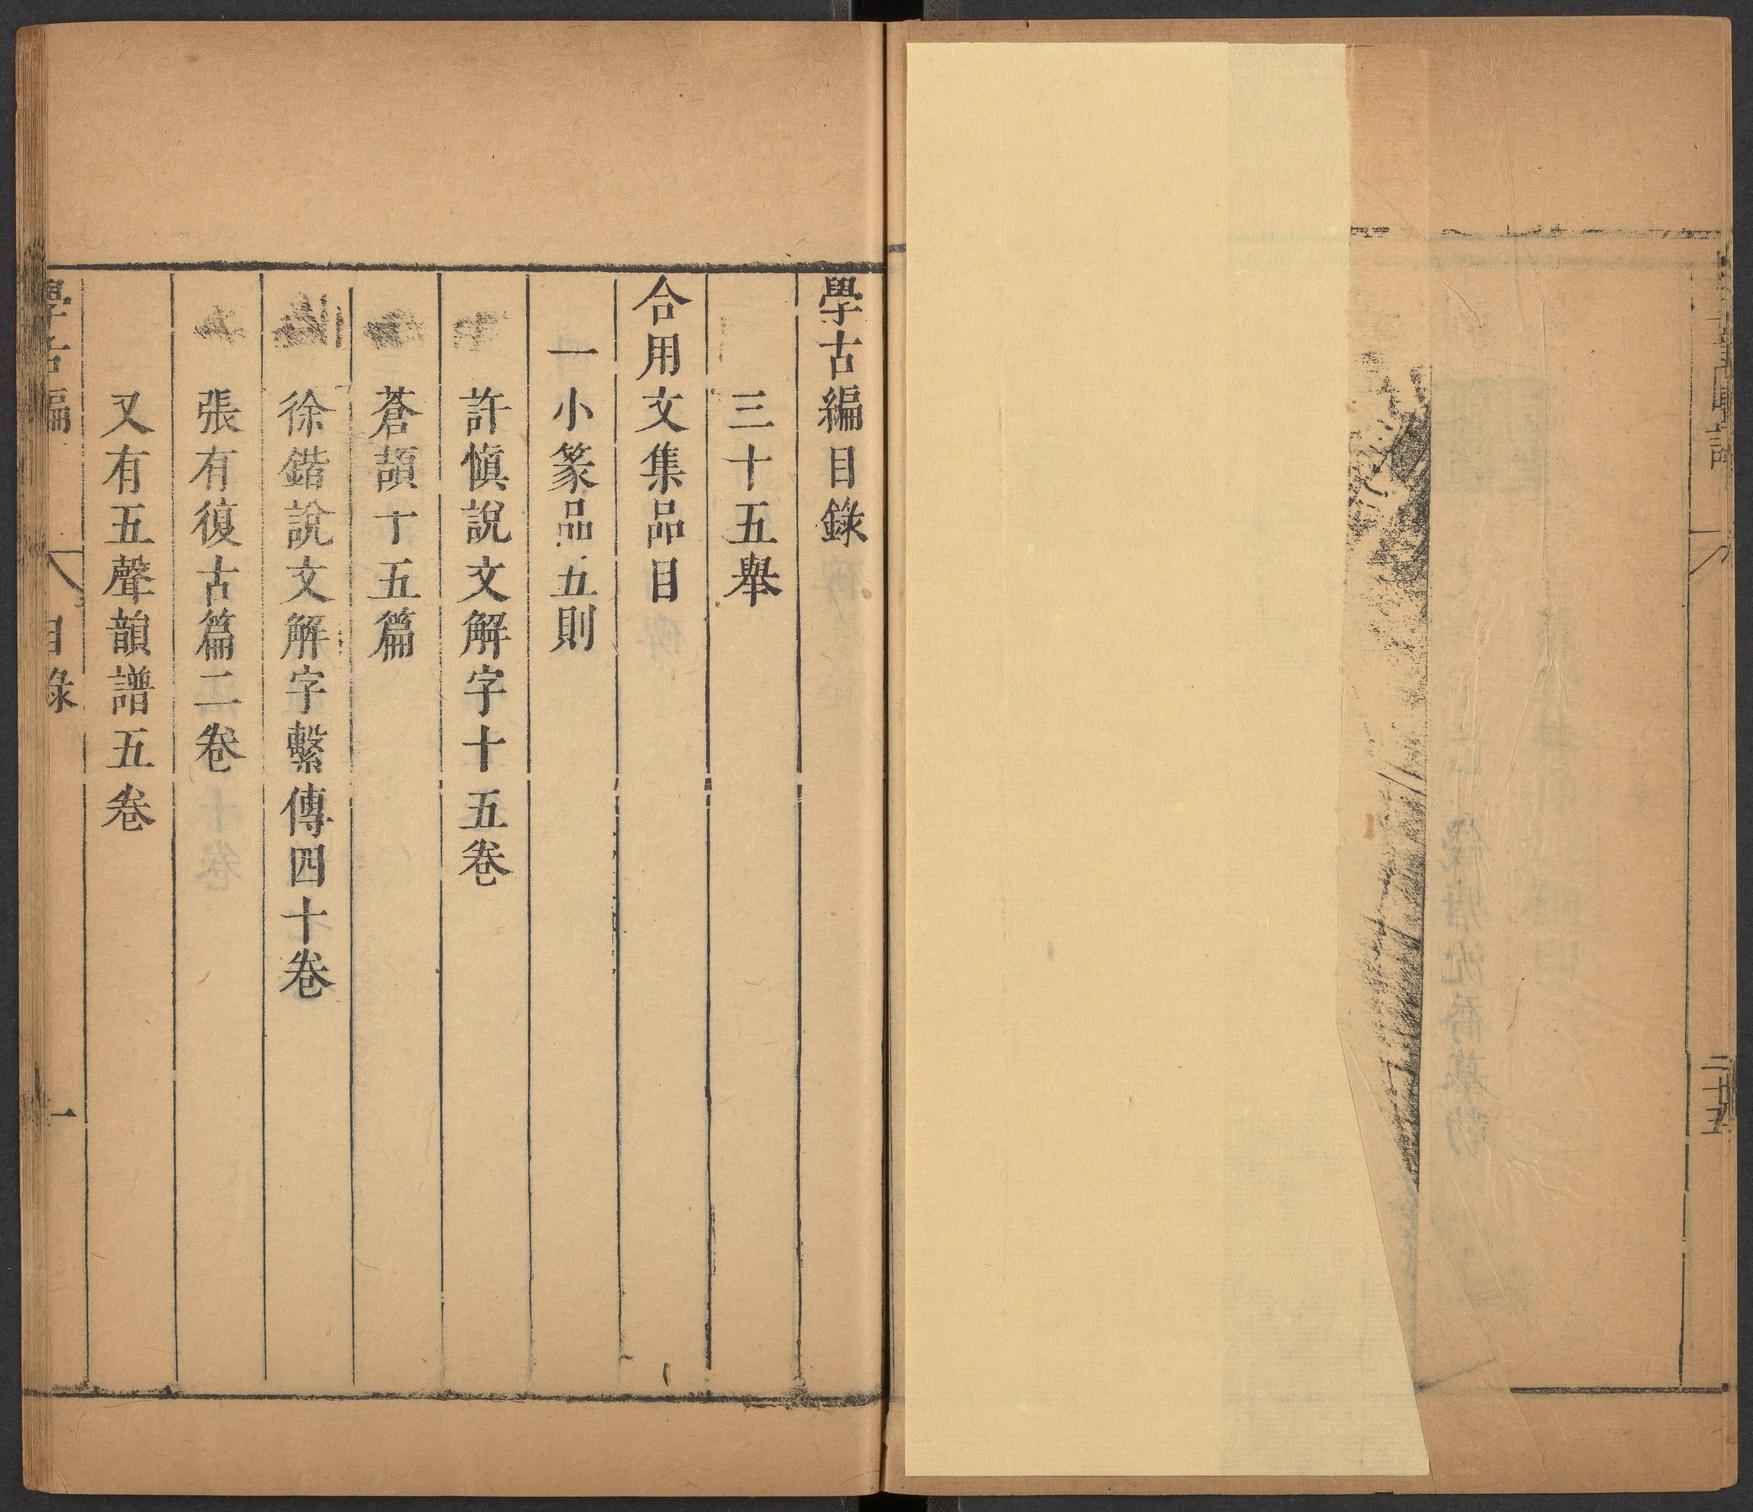 二十五
學古編目錄
三十五舉
合用文集品目
一小篆品五則
許慎說文解字十五卷
蒼頡十五篇
徐鍇說文解字繫傳四十卷
張有復古篇二卷
又有五聲韻譜五卷
學古編
目錄
一